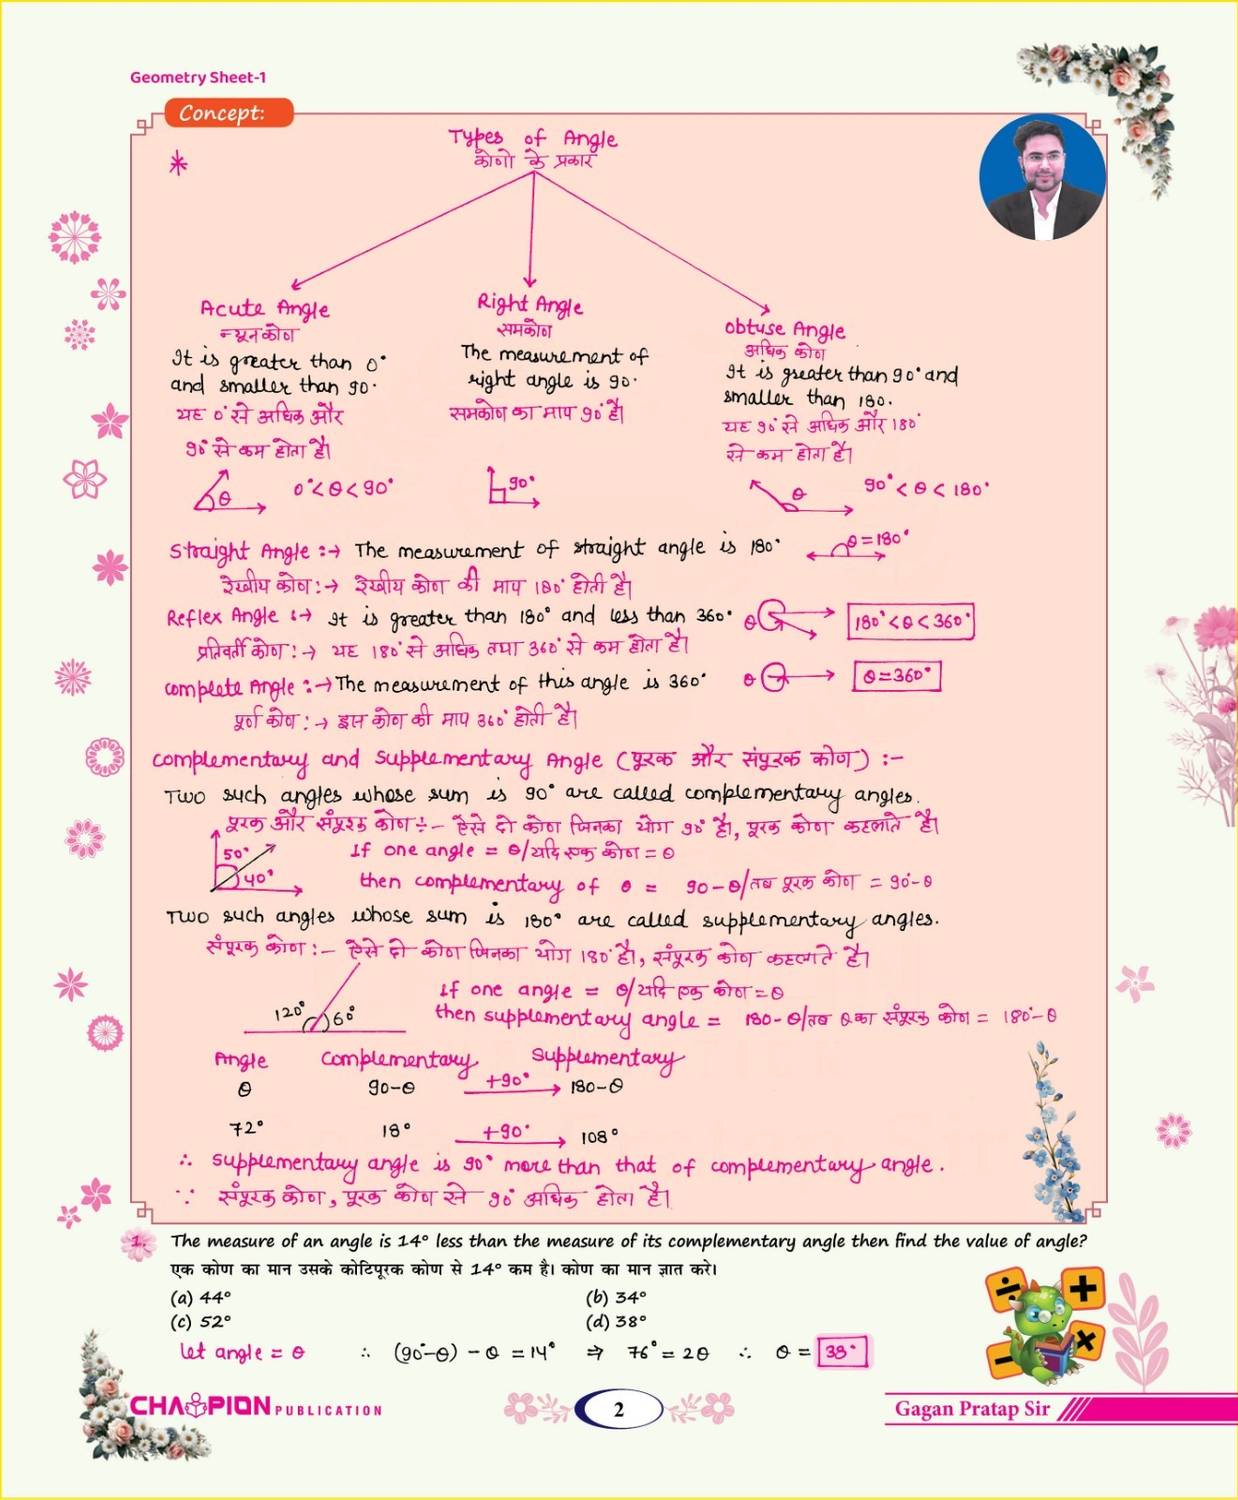 Geometry Sheet-1
Concept:
*
Types of Angle
कोणो के प्रकार
Acute Angle
न्यूनकोण
It is greater than 0°
and smaller than 90°
यह 0° से अधिक और
90° से कम होता है।
θ
0°<θ<90°
Right Angle
समकोण
The measurement of
right angle is 90°
समकोण का माप 90° है।
90°
obtuse Angle
अधिक कोण
It is greater than 90° and
smaller than 180.
यह 90° से अधिक और 180°
से कम होता है।
θ
90° < θ < 180°
Straight Angle :→ The measurement of straight angle is 180° θ=180°
रेखीय कोण :→ रेखीय कोण की माप 180° होती है।
Reflex Angle :→ It is greater than 180° and less than 360° θ 180° < θ < 360°
प्रतिवर्ती कोण :→ यह 180° से अधिक तथा 360° से कम होता है।
Complete Angle :→ The measurement of this angle is 360° θ θ=360°
पूर्ण कोण :→ इस कोण की माप 360° होती है।
Complementary and Supplementary Angle (पूरक और संपूरक कोण) :-
Two such angles whose sum is 90° are called complementary angles.
पूरक और संपूरक कोण :- ऐसे दो कोण जिनका योग 90° है, पूरक कोण कहलाते है।
50°
40°
If one angle = θ/यदि एक कोण = θ
then complementary of θ = 90-θ/तब पूरक कोण = 90°-θ
Two such angles whose sum is 180° are called supplementary angles.
संपूरक कोण :- ऐसे दो कोण जिनका योग 180° है, संपूरक कोण कहलाते है।
120° 60°
If one angle = θ/यदि एक कोण = θ
then supplementary angle = 180-θ/तब θ का संपूरक कोण = 180°-θ
Angle Complementary Supplementary
θ 90-θ +90° 180-θ
72° 18° +90° 108°
∴ supplementary angle is 90° more than that of complementary angle.
∵ संपूरक कोण, पूरक कोण से 90° अधिक होता है।
1. The measure of an angle is 14° less than the measure of its complementary angle then find the value of angle?
एक कोण का मान उसके कोटिपूरक कोण से 14° कम है। कोण का मान ज्ञात करे।
(a) 44° (b) 34°
(c) 52° (d) 38°
Let angle = θ ∴ (90°-θ) - θ = 14° ⇒ 76° = 2θ ∴ θ = 38°
÷ + − ×
CHAMPION PUBLICATION
2
Gagan Pratap Sir